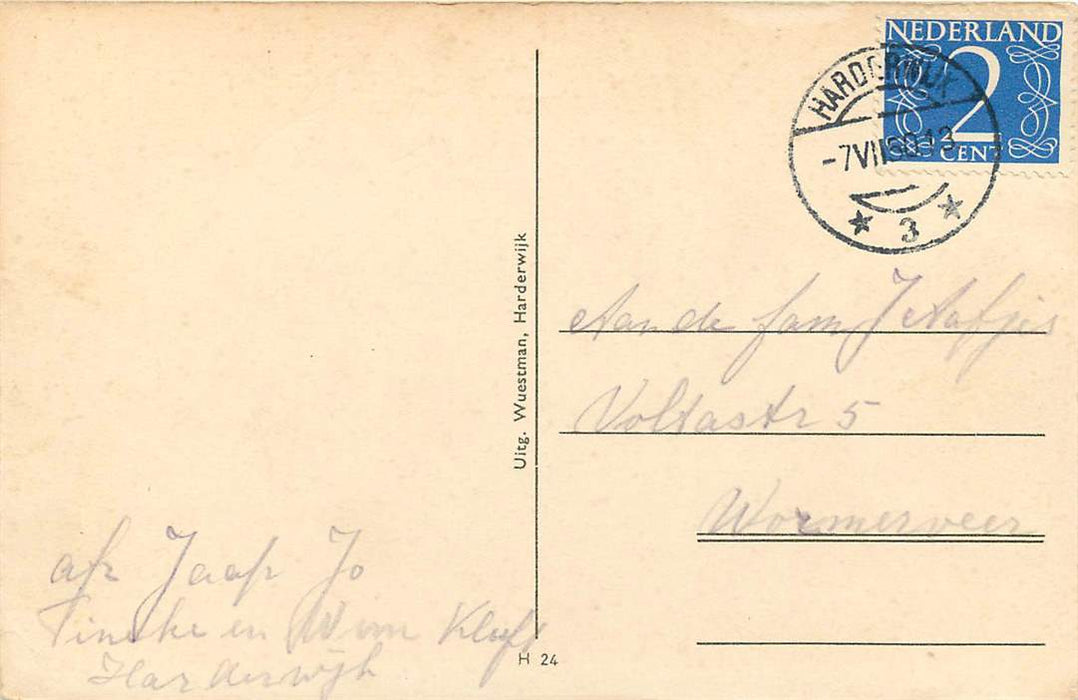 NEDERLAND
2
CENT
HARDERWIJK
-7 VII 50 13
3
Uitg. Wuestman, Harderwijk
Aan de fam J Aafjes
Voltastr 5
Wormerveer
afz Jaap Jo
Tineke en Wim
Harderwijk
H 24